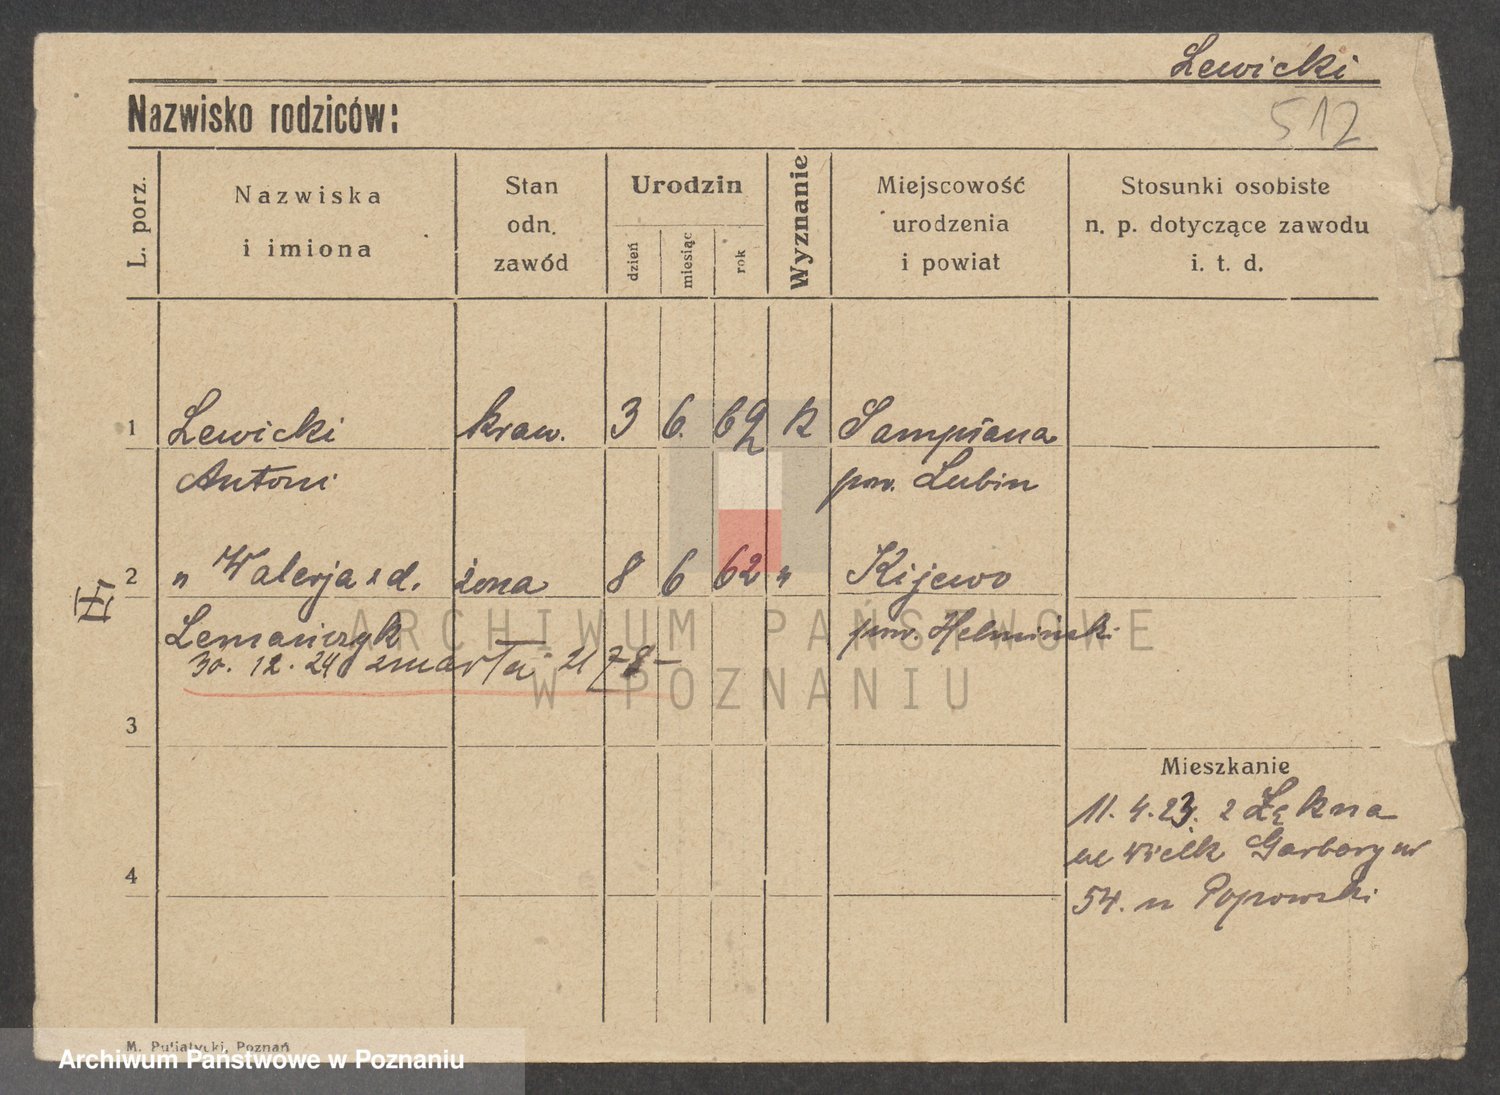 Lewicki
512
Nazwisko rodziców:
L. porz.
Nazwiska
i imiona
Stan
odn.
zawód
Urodzin
dzień
miesiąc
rok
Wyznanie
Miejscowość
urodzenia
i powiat
Stosunki osobiste
n. p. dotyczące zawodu
i. t. d.
1 Lewicki kraw. 3 6. 62 k
Antoni pow. Lubin
2 " Walerja z d. żona 8 6 62 " Kijewo
II
Lemańczyk pow. Helmiński
30. 12. 24 zmarła
3
Mieszkanie
11. 4. 23. z Łękna
Wielk Garbary nr
4
54. u Popowski
ARCHIWUM PAŃSTWOWE
W POZNANIU
M. Pujatycki, Poznań
Archiwum Państwowe w Poznaniu